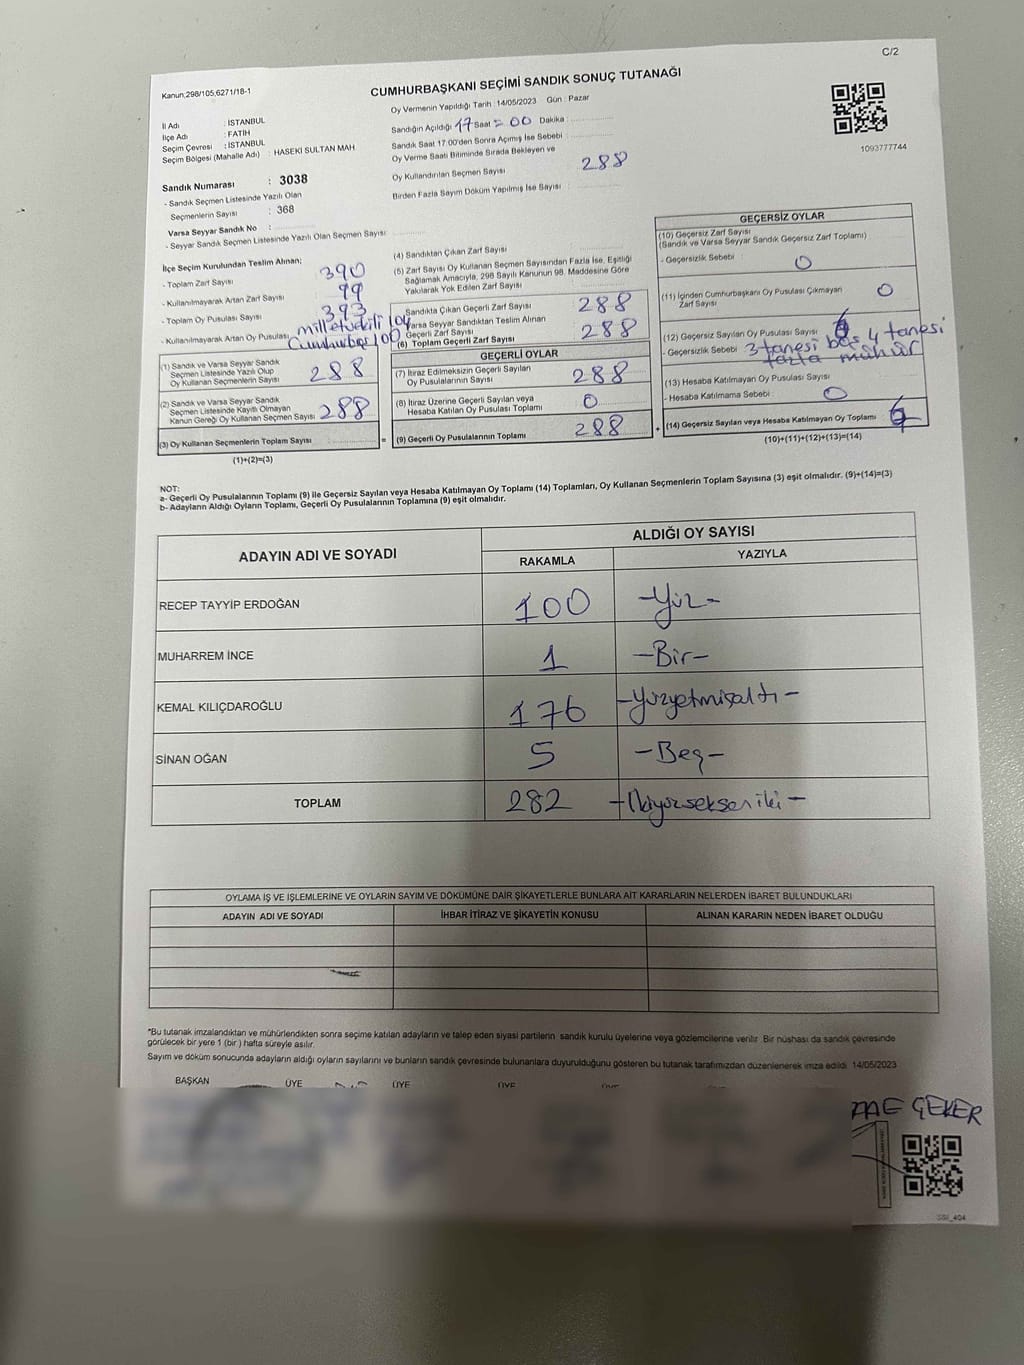 C/2
Kanun;298/105,6271/18-1
CUMHURBAŞKANI SEÇİMİ SANDIK SONUÇ TUTANAĞI
Oy Vermenin Yapıldığı Tarih : 14/05/2023 Gün : Pazar
İl Adı : İSTANBUL
İlçe Adı : FATİH
Seçim Çevresi : İSTANBUL
Seçim Bölgesi (Mahalle Adı) : HASEKİ SULTAN MAH
Sandık Numarası : 3038
- Sandık Seçmen Listesinde Yazılı Olan
Seçmenlerin Sayısı : 368
Varsa Seyyar Sandık No :
- Seyyar Sandık Seçmen Listesinde Yazılı Olan Seçmen Sayısı :
Sandığın Açıldığı 17 Saat = 00 Dakika :
Sandık Saat 17.00'den Sonra Açımış İse Sebebi :
Oy Verme Saati Bitiminde Sırada Bekleyen ve
Oy Kullandırılan Seçmen Sayısı 288
Birden Fazla Sayım Döküm Yapılmış İse Sayısı :
1093777744
İlçe Seçim Kurulundan Teslim Alınan;
- Toplam Zarf Sayısı 390
- Kullanılmayarak Artan Zarf Sayısı 99
- Toplam Oy Pusulası Sayısı 393
- Kullanılmayarak Artan Oy Pusulası milletvekili 104
Cumhurbaş 100
(1) Sandık ve Varsa Seyyar Sandık
Seçmen Listesinde Yazılı Olup
Oy Kullanan Seçmenlerin Sayısı 288
(2) Sandık ve Varsa Seyyar Sandık
Seçmen Listesinde Kayıtlı Olmayan
Kanun Gereği Oy Kullanan Seçmen Sayısı 288
(3) Oy Kullanan Seçmenlerin Toplam Sayısı :
(1)+(2)=(3)
(4) Sandıktan Çıkan Zarf Sayısı
(5) Zarf Sayısı Oy Kullanan Seçmen Sayısından Fazla İse, Eşitliği
Sağlamak Amacıyla, 298 Sayılı Kanunun 98. Maddesine Göre
Yakılarak Yok Edilen Zarf Sayısı
Sandıkta Çıkan Geçerli Zarf Sayısı 288
Varsa Seyyar Sandıktan Teslim Alınan
Geçerli Zarf Sayısı 288
(6) Toplam Geçerli Zarf Sayısı
GEÇERLİ OYLAR
(7) İtiraz Edilmeksizin Geçerli Sayılan
Oy Pusulalarının Sayısı 288
(8) İtiraz Üzerine Geçerli Sayılan veya
Hesaba Katılan Oy Pusulası Toplamı 0
(9) Geçerli Oy Pusulalarının Toplamı 288
GEÇERSİZ OYLAR
(10) Geçersiz Zarf Sayısı
(Sandık ve Varsa Seyyar Sandık Geçersiz Zarf Toplamı)
- Geçersizlik Sebebi : 0
(11) İçinden Cumhurbaşkanı Oy Pusulası Çıkmayan
Zarf Sayısı 0
(12) Geçersiz Sayılan Oy Pusulası Sayısı
- Geçersizlik Sebebi 3 tanesi boş 4 tanesi
fazla mühür
(13) Hesaba Katılmayan Oy Pusulası Sayısı
- Hesaba Katılmama Sebebi : 0
(14) Geçersiz Sayılan veya Hesaba Katılmayan Oy Toplamı
(10)+(11)+(12)+(13)=(14)
NOT:
a- Geçerli Oy Pusulalarının Toplamı (9) ile Geçersiz Sayılan veya Hesaba Katılmayan Oy Toplamı (14) Toplamları, Oy Kullanan Seçmenlerin Toplam Sayısına (3) eşit olmalıdır. (9)+(14)=(3)
b- Adayların Aldığı Oyların Toplamı, Geçerli Oy Pusulalarının Toplamına (9) eşit olmalıdır.
ADAYIN ADI VE SOYADI
ALDIĞI OY SAYISI
RAKAMLA YAZIYLA
RECEP TAYYİP ERDOĞAN 100 -Yüz-
MUHARREM İNCE 1 -Bir-
KEMAL KILIÇDAROĞLU 176 -Yüzyetmişaltı-
SİNAN OĞAN 5 -Beş-
TOPLAM 282 -İkiyüzsekseniki-
OYLAMA İŞ VE İŞLEMLERİNE VE OYLARIN SAYIM VE DÖKÜMÜNE DAİR ŞİKAYETLERLE BUNLARA AİT KARARLARIN NELERDEN İBARET BULUNDUKLARI
ADAYIN ADI VE SOYADI İHBAR İTİRAZ VE ŞİKAYETİN KONUSU ALINAN KARARIN NEDEN İBARET OLDUĞU
*Bu tutanak imzalandıktan ve mühürlendikten sonra seçime katılan adayların ve talep eden siyasi partilerin sandık kurulu üyelerine veya gözlemcilerine verilir. Bir nüshası da sandık çevresinde
görülecek bir yere 1 (bir) hafta süreyle asılır.
Sayım ve döküm sonucunda adayların aldığı oyların sayılarını ve bunların sandık çevresinde bulunanlara duyurulduğunu gösteren bu tutanak tarafımızdan düzenlenerek imza edildi 14/05/2023
BAŞKAN ÜYE ÜYE ÜYE
ÇEKER